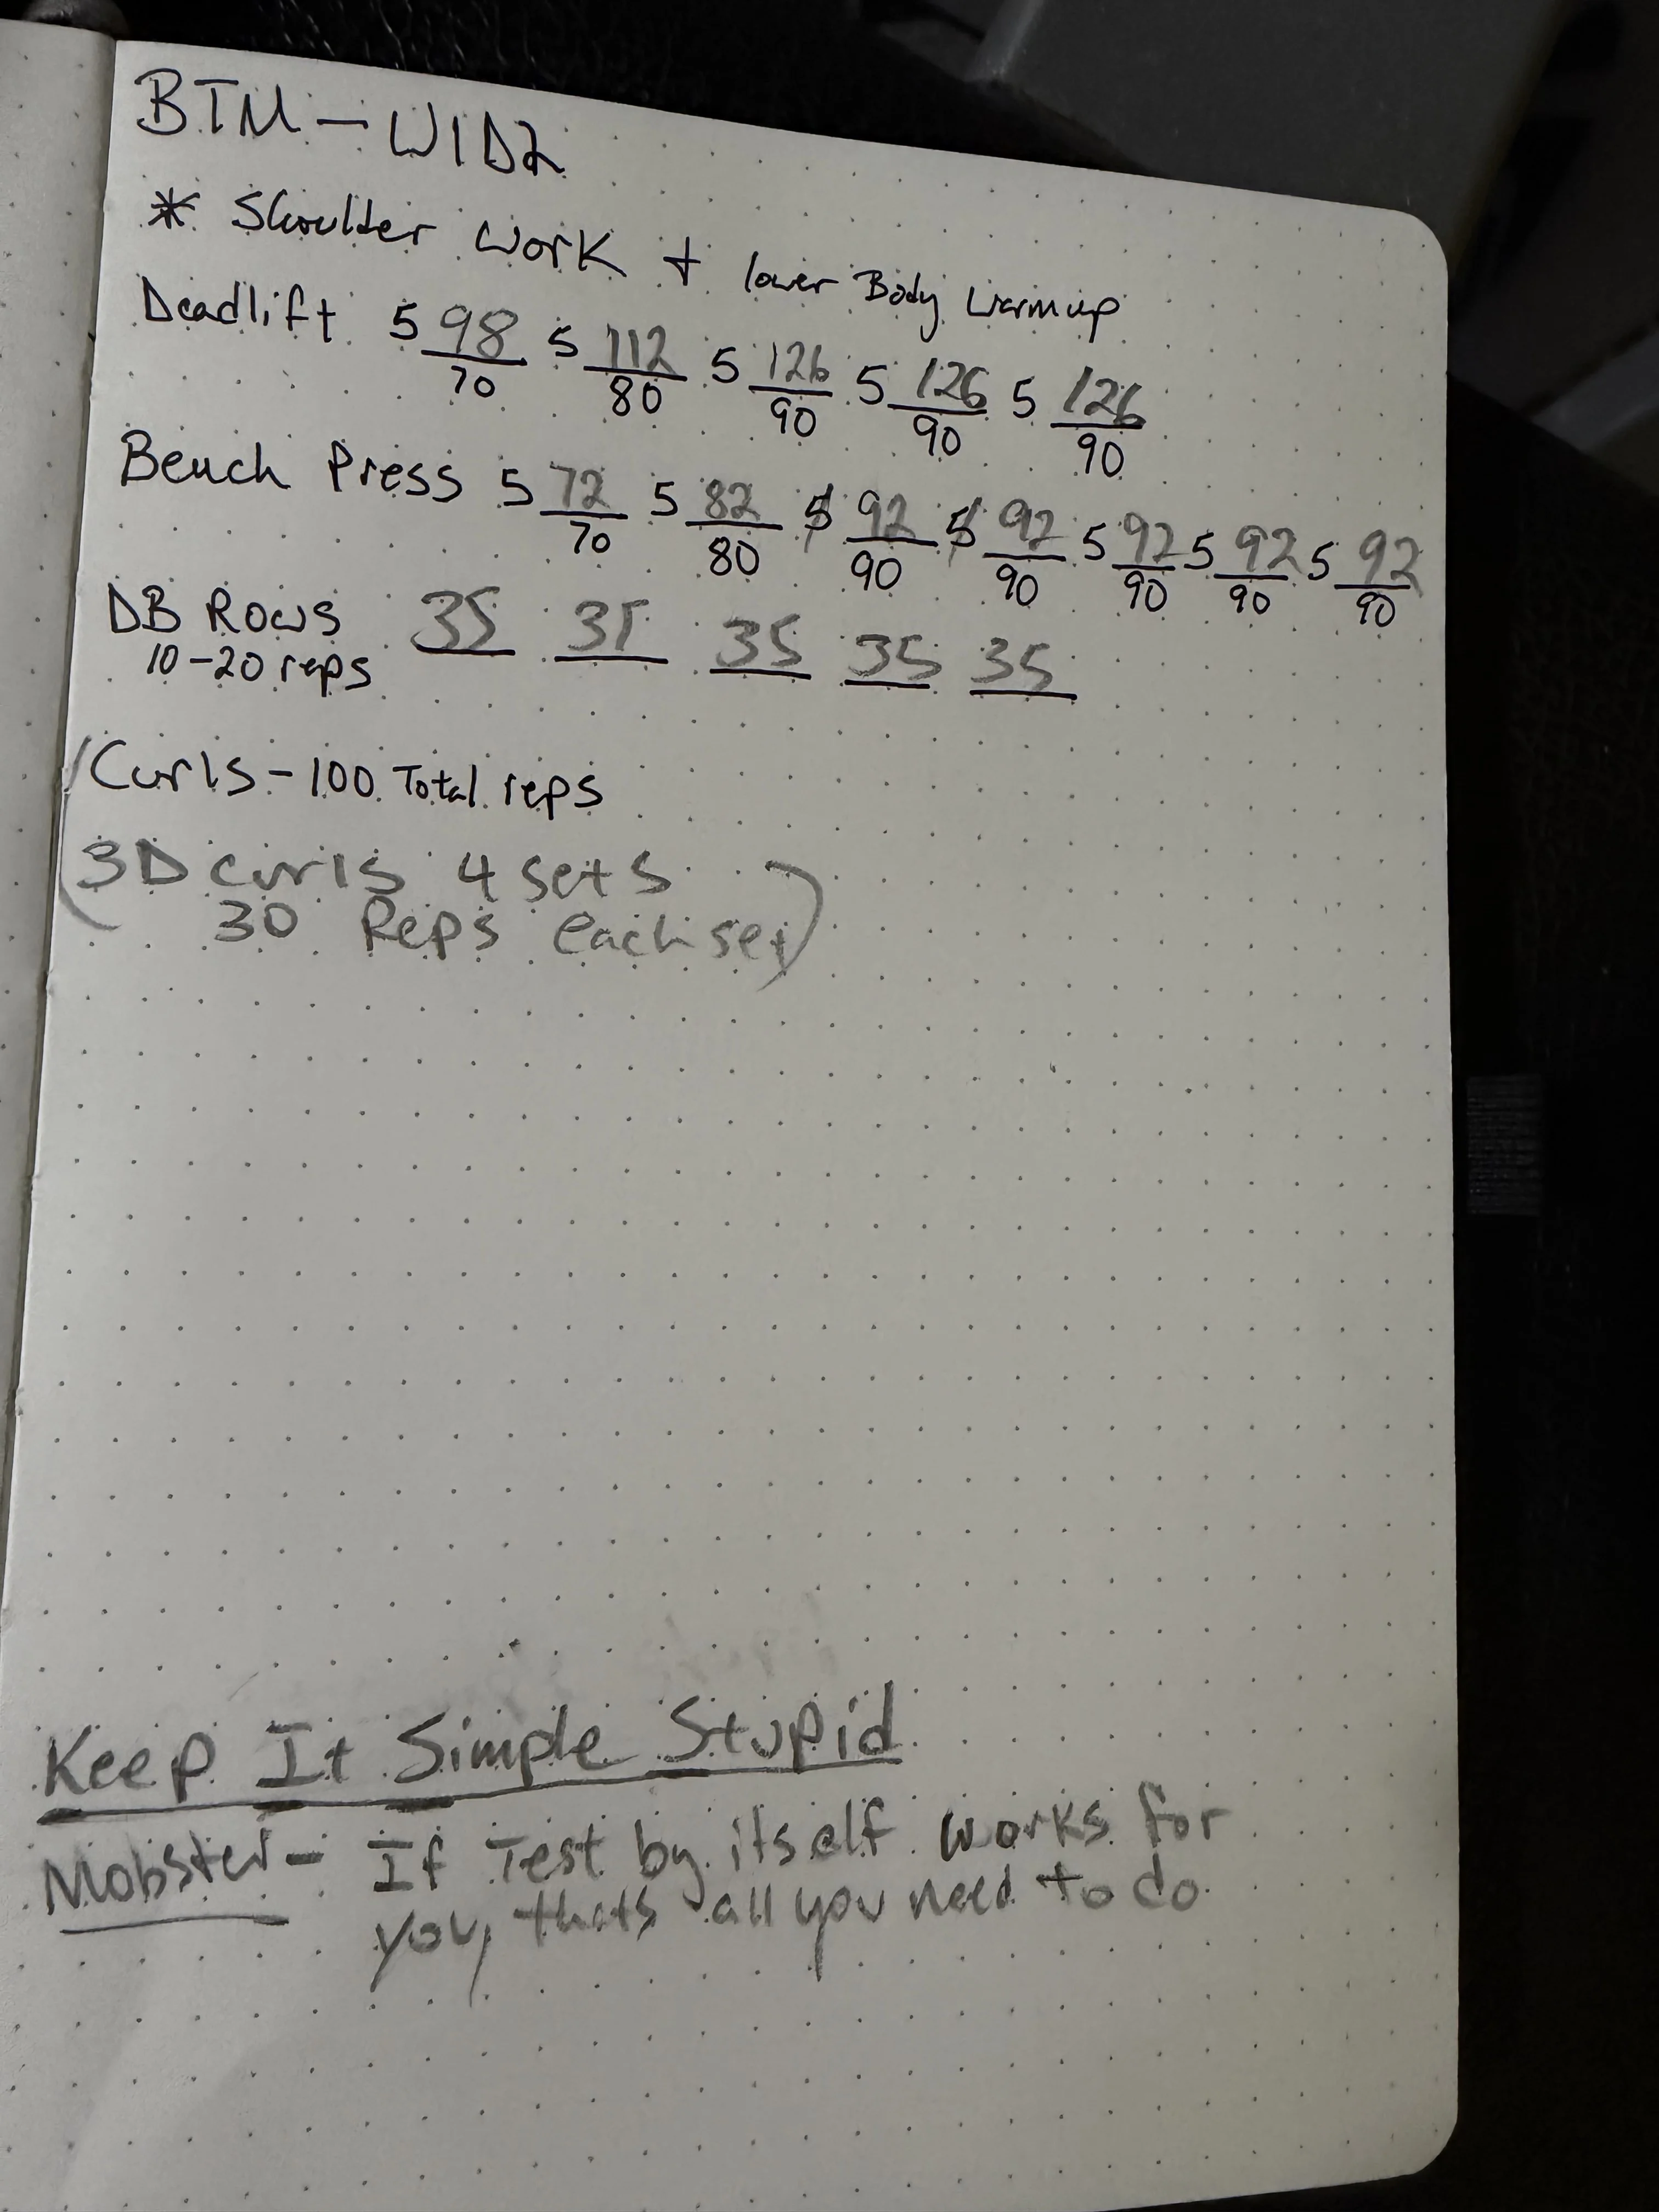 BTM - W1D2
* Shoulder Work + lower Body Warmup
Deadlift 5 98/70 5 112/80 5 126/90 5 126/90 5 126/90
Bench Press 5 72/70 5 82/80 5 92/90 5 92/90 5 92/90 5 92/90 5 92/90
DB Rows 35 35 35 35 35
10-20 reps
Curls - 100 Total reps
(3D curls 4 sets
30 Reps each set)
Keep It Simple Stupid
Mobster - If Test by itself works for
you, thats all you need to do